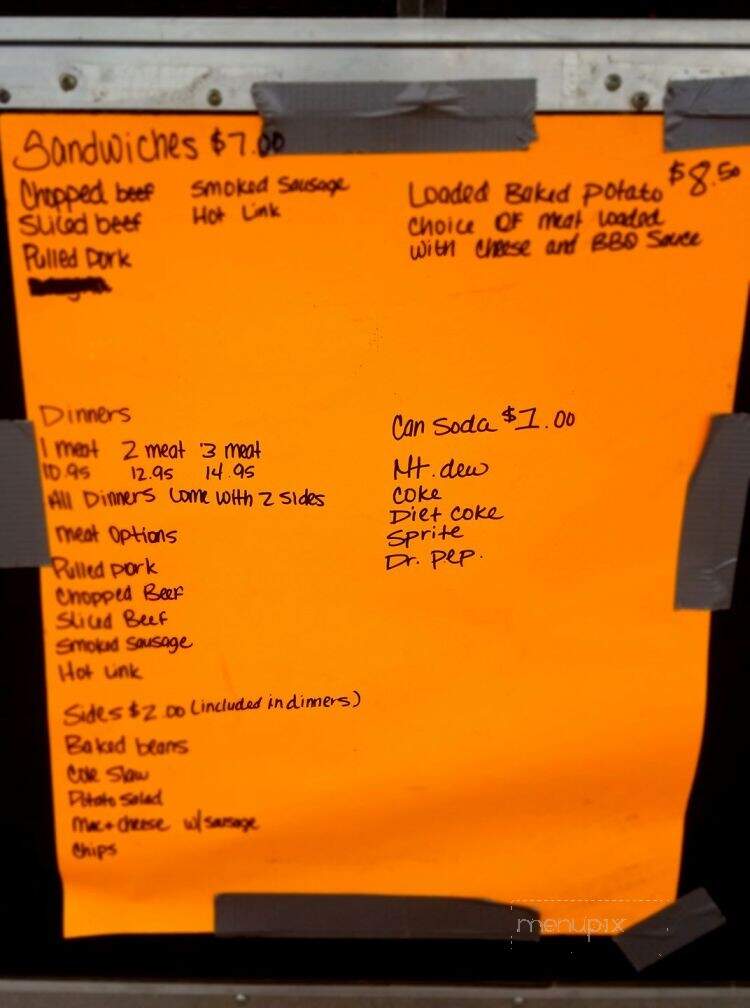 Sandwiches $7.00
Chopped beef
Sliced beef
Pulled Pork
Smoked Sausage
Hot Link
Loaded Baked Potato $8.50
Choice OF meat loaded
with cheese and BBQ Sauce
Dinners
1 meat 2 meat 3 meat
10.95 12.95 14.95
All Dinners Come with 2 sides
meat options
Pulled pork
Chopped Beef
Sliced Beef
Smoked Sausage
Hot Link
Sides $2.00 (included in dinners)
Baked beans
Cole Slaw
Potato Salad
Mac + cheese w/ sausage
Chips
Can Soda $1.00
Mt. dew
Coke
Diet Coke
Sprite
Dr. Pep.
menupix